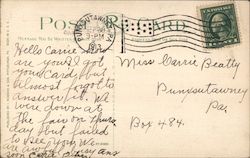 POST CARD.
PUNXSUTAWNEY
Hello Carrie
are you? I got
your card, but
almost forgot to
answer it. We
were down at
the fair on thurs
day but failed
to see you. We
in
soon
Miss Carrie Beatty
Punxsutawney
Pa.
Box 484